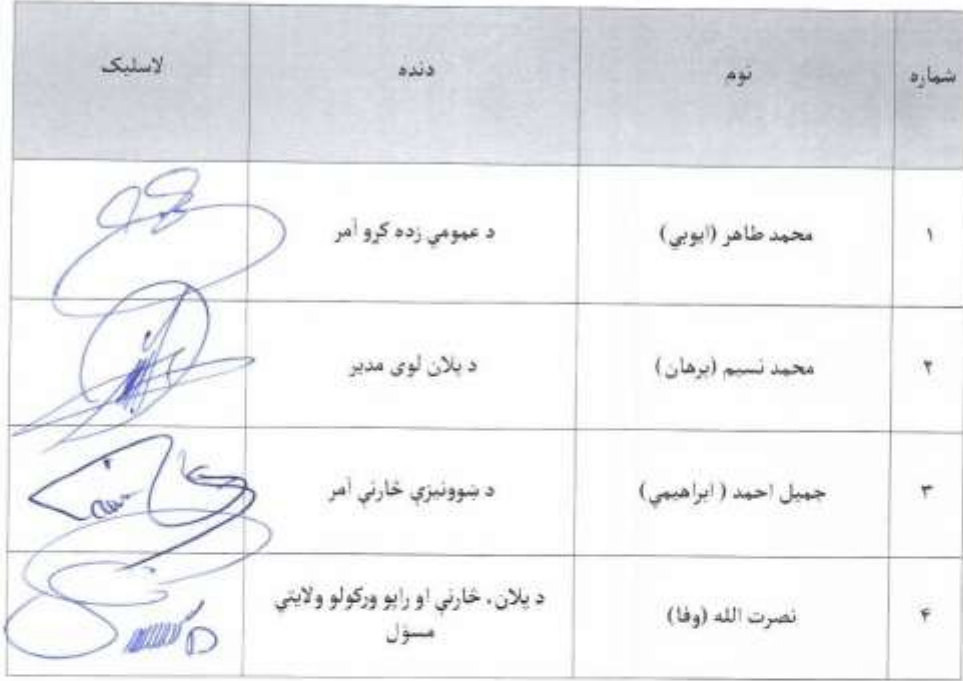 شماره نوم دنده لاسلیک
۱ محمد طاهر (ایوبي) د عمومي زده کړو آمر
۲ محمد نسیم (برهان) د پلان لوی مدیر
۳ جمیل احمد ( ابراهیمي) د ښوونیزې څارنې آمر
۴ نصرت الله (وفا) د پلان، څارنې او راپو ورکولو ولایتي
مسؤل